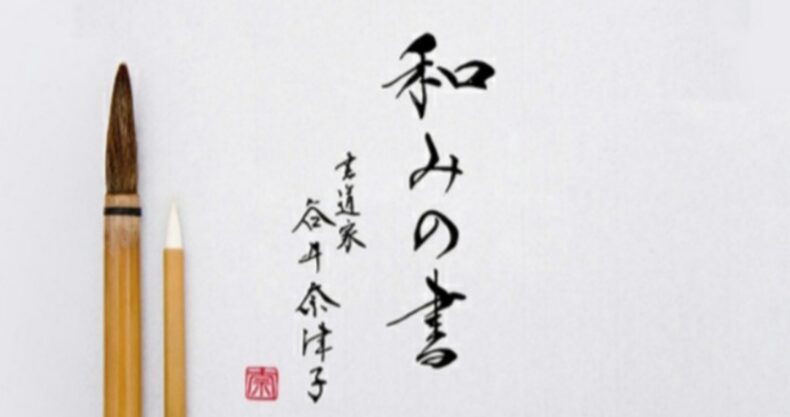 和みの書
書道家
谷井奈津子